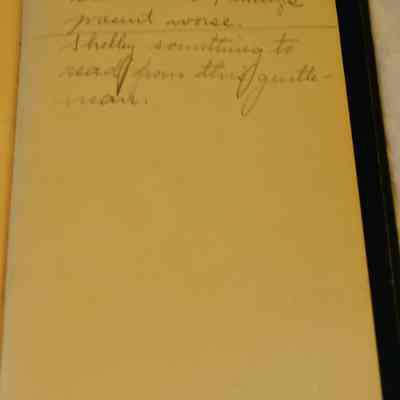 present worse.
Shelley something to
read from this gentle-
man.